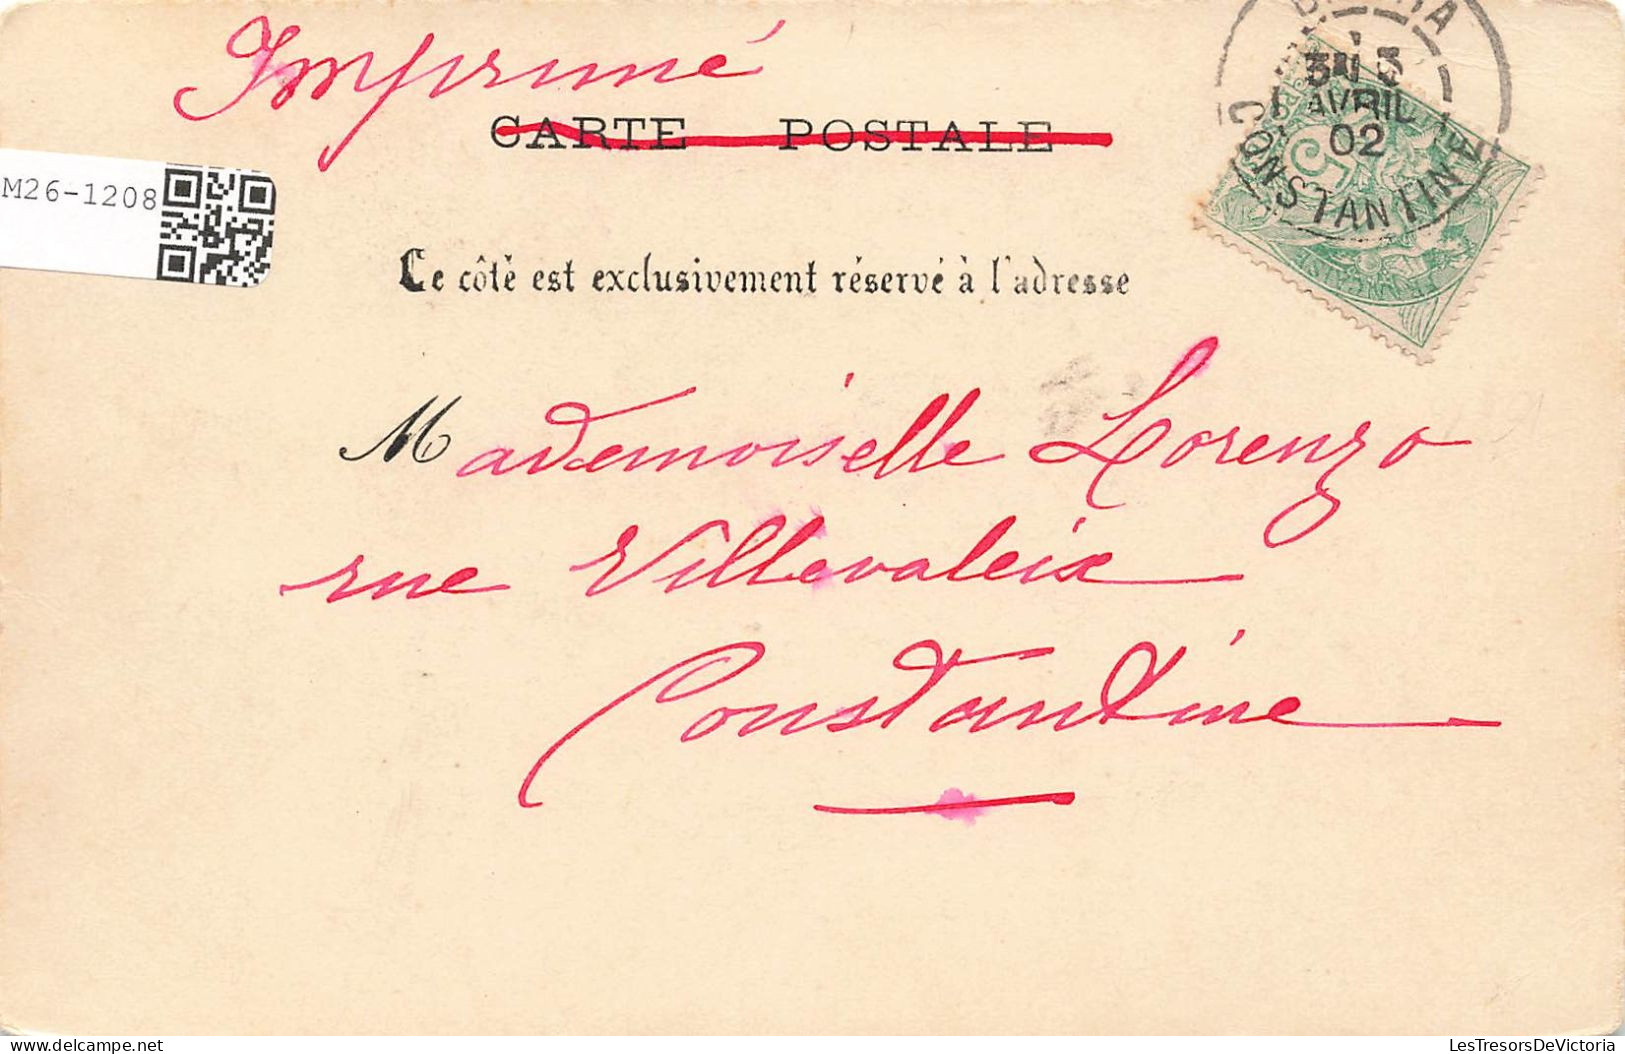 Imprimé
CARTE POSTALE
M26-1208
AVRIL
02
CONSTANTINE
5
Ce côté est exclusivement réservé à l'adresse
Mademoiselle Lorenzo
rue Villevaleix
Constantine
LesTresorsDeVictoria
delcampe.net